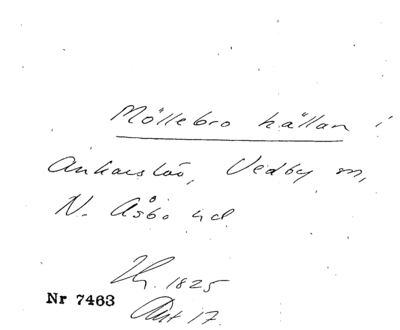 Möllebro källan i
Ankarslöv, Vedby sn,
N. Åsbo hd
1825
Nr 7463
Ant 17.